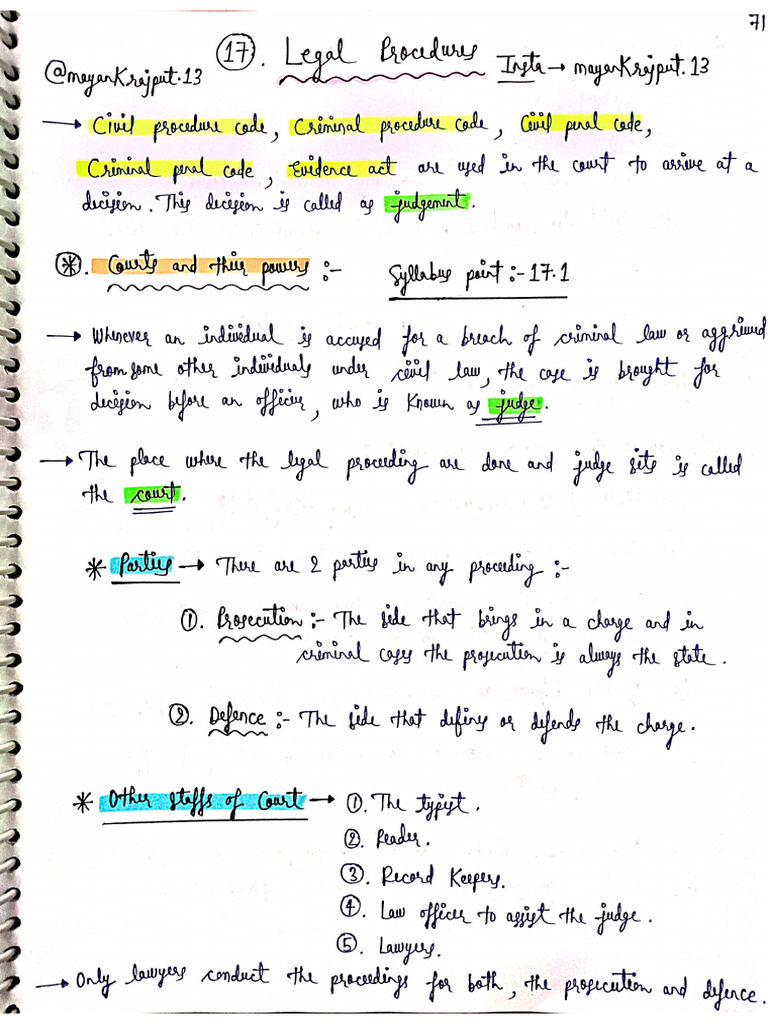 71
17. Legal Procedures
@mayankrajput.13
Insta → mayankrajput.13
→ Civil procedure code, Criminal procedure code, Civil penal code,
Criminal penal code, Evidence act are used in the court to arrive at a
decision. This decision is called as judgement.
*. Courts and their powers :- Syllabus point :- 17.1
→ Whenever an individual is accused for a breach of criminal law or aggrieved
from some other individuals under civil law, the case is brought for
decision before an officer, who is known as judge.
→ The place where the legal proceeding are done and judge sits is called
the court.
* Parties → There are 2 parties in any proceeding :-
①. Prosecution :- The side that brings in a charge and in
criminal cases the prosecution is always the state.
②. Defence :- The side that defines or defends the charge.
* Other staffs of Court → ①. The typist.
②. Reader.
③. Record Keepers.
④. Law officer to assist the judge.
⑤. Lawyers.
→ Only lawyers conduct the proceedings for both, the prosecution and defence.